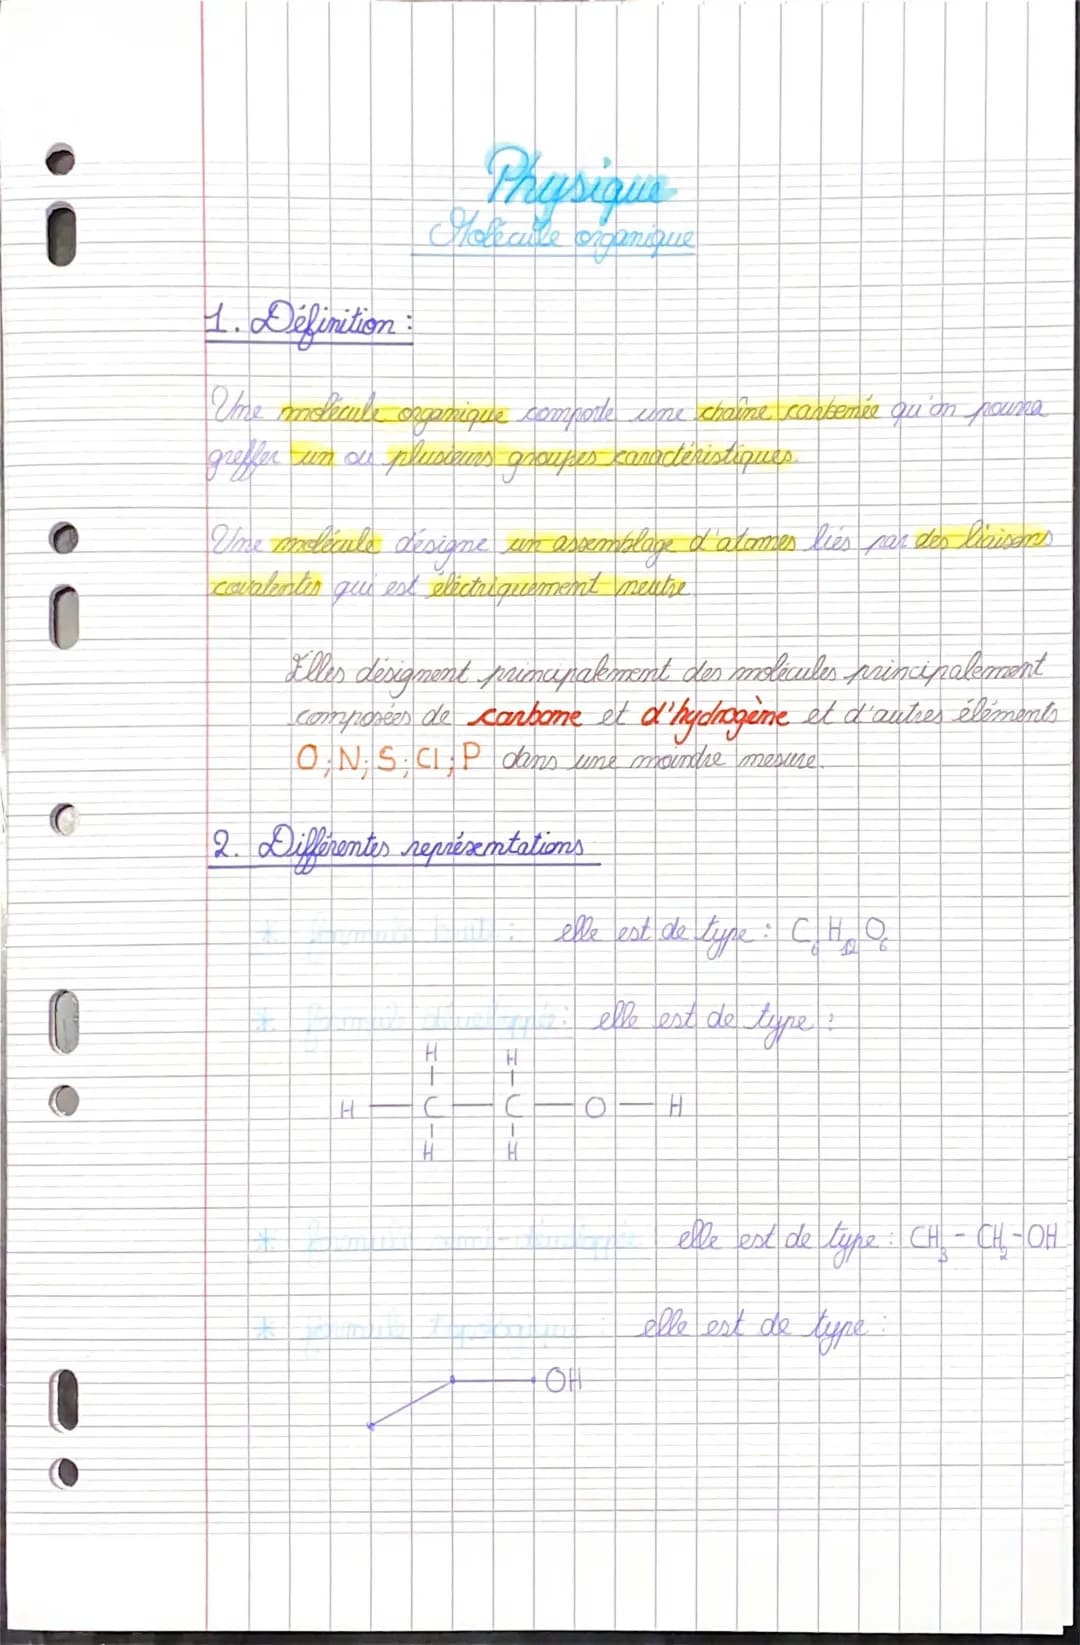 Physique
Molécule organique
1. Définition :
Une molécule organique comporte une chaîne carbonée qu'on pourra
greffer un ou plusieurs groupes caractéristiques.
Une molécule désigne un assemblage d'atomes liés par des liaisons
covalentes qui est éléctriquement neutre
Elles désignent principalement des molécules principalement
composées de carbone et d'hydrogène et d'autres éléments
O; N; S; Cl; P dans une moindre mesure.
2. Différentes représentations
* : elle est de type : C₆ H₁₂ O₆
* : elle est de type :
H H
H — C — C — O — H
H H
* : elle est de type : CH₃ - CH₂ - OH
* : elle est de type :
OH